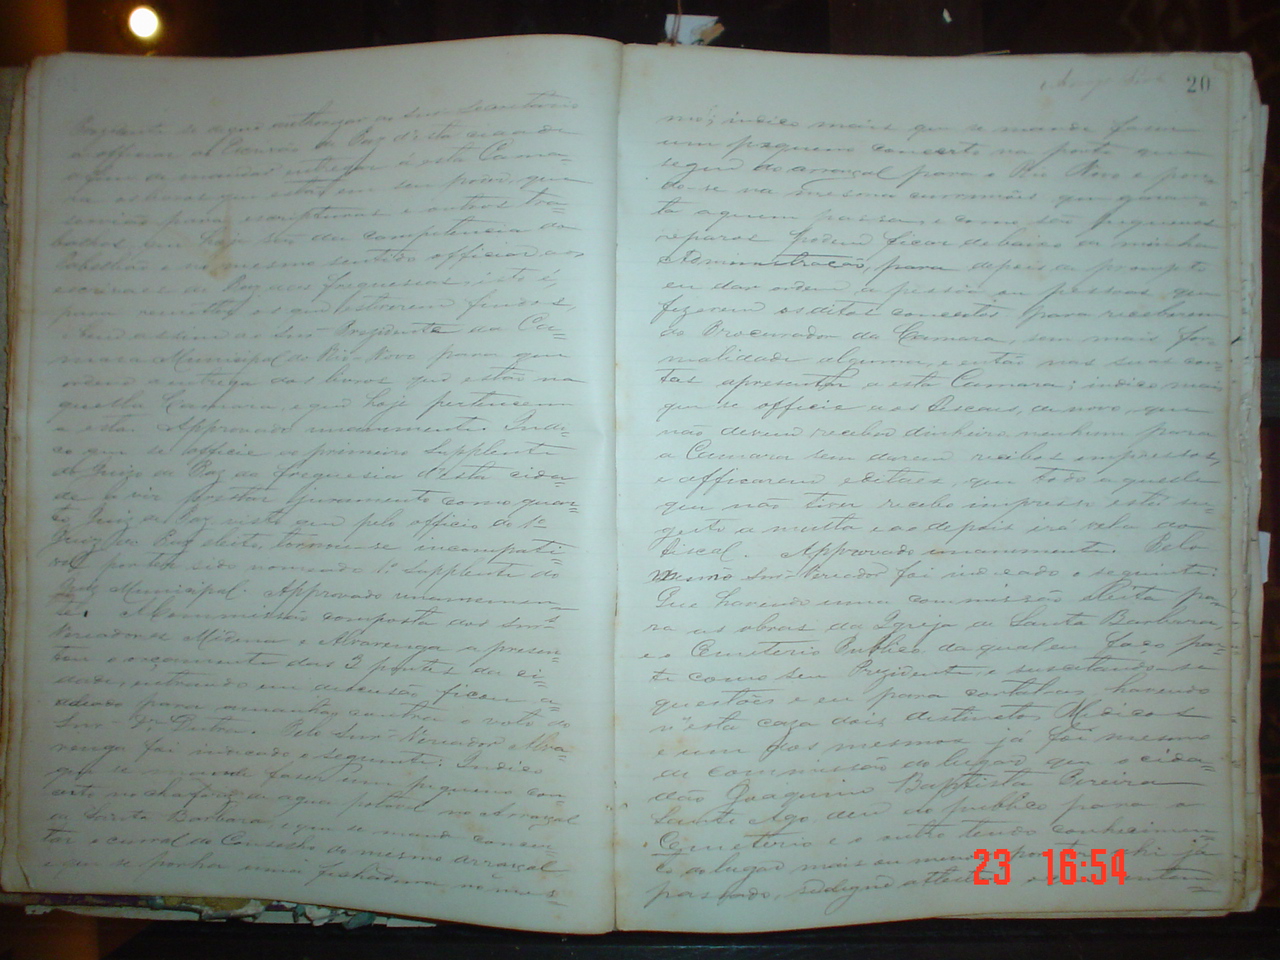 Presidente se digne authorizar ao Snr. Secretario
a officiar ao Escrivão de Paz d'esta cidade
afim de mandar entregar á esta Cama-
ra os livros que estão em seu poder, que
servião para escripturas e outros tra-
balhos, que hoje são da competencia do
Tabellião e no mesmo sentido officiar aos
escrivães de Paz das freguesias, isto é,
para remetter os que estiverem findos,
bem assim ao Snr. Presidente da Ca-
mara Municipal do Rio-Novo para que
ordene a entrega dos livros que estão na
quella Camara, e que hoje pertencem
a esta. Approvado unanimente. Indi-
co que se officie ao primeiro Supplente
de Juiz de Paz da freguesia d'esta cida
de a vir prestar juramento como quar-
to Juiz de Paz visto que pelo officio do 1º
Juiz de Paz eleito, tornou-se incompati-
vel por ter sido nomeado 1º Supplente do
Juiz Municipal. Approvado unanimen-
te. A Commissão composta dos Snrs
Vereadores Medina e Alvarenga apresen-
tou o orçamento das 3 pontes da ci-
dade, entrando em discussão ficou a-
diado para amanhã contra o voto do
Snr. Dr. Dutra. Pelo Snr. Vereador Alva
renga foi indicado o seguinte: Indico
que se mande faser um pequeno con-
certo no chafariz de agua potavel no Arraial
de Santa Barbara, e que se mande concer-
tar o curral do Conselho do mesmo arraial
e que se ponha uma fechadura no mes-
20
mo; indico mais que se mande faser
um pequeno concerto na ponte que
segue do arraial para o Rio Novo e pon-
do-se na mesma corrimões que garan-
ta a quem passa, e como são pequenos
reparos podem ficar debaixo da minha
Administração, para depois de prompto
eu dar ordem a pessoa ou pessoas que
fizerem os ditos concertos para receberem
do Procurador da Camara, sem mais for-
malidade alguma, e tão nas suas con-
tas apresentar a esta Camara; indico mais
que se officie aos Fiscaes, de novo, que
não devem receber dinheiro nenhum para
a Camara sem darem recibos impressos,
e afficarem editaes, que todo aquelle
que não tiver recibo impresso está su-
geito a multa e ao depois irá vêla ao
Fiscal. Approvado unanimente. Pelo
mesmo Snr. Vereador foi indicado o seguinte:
Que havendo uma commissão eleita pa-
ra as obras da Igreja de Santa Barbara,
e o Cemiterio Publico da qual eu faço par-
te como seu Presidente, e suscitando-se
questões e eu para cortal-as, havendo
n'esta caza dois distinctos Medicos
e um dos mesmos já foi mesmo
de commissão do lugar que o cida-
dão Joaquim Baptista Pereira
Santo Ago deu ao publico para o
Cemiterio e o outro tendo conhecimen-
to do lugar mais ou menos por ter ahi já
passado,
23 16:54